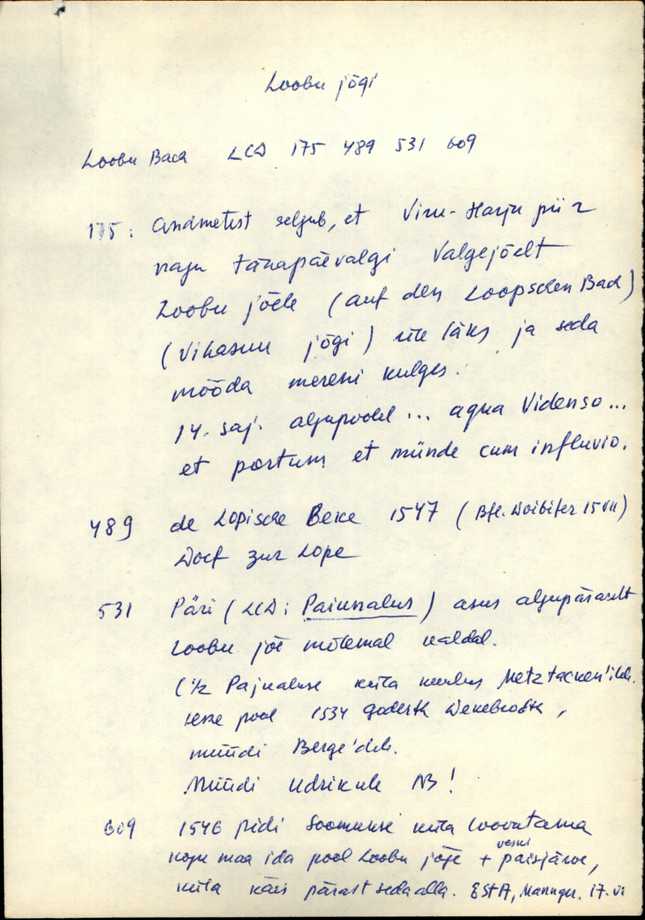 Loobu jõgi
Loobu Bach LCD 175 489 531 609
175: Andmetest selgub, et Viru-Harju piir
nagu tänapäevalgi Valgejõelt
Loobu jõele (auf den Loopschen Bach)
(Vihasuu jõgi) üle läks ja seda
mööda mereni kulges.
14. saj. algupoolel ... aqua Videnso...
et portum et münde cum influvio.
489 de Lopische Beke 1547 (Bfl. 15 VII)
Dorf zur Lope
531 Päri (LCD: Paiunalus) asus algupäraselt
Loobu jõe mõlemal kaldal.
(1/2 Pajualuse küla kuulus Metztacken'ile.
teine pool 1534
müüdi Berge'dele.
Müüdi Udrikule NB!
609 1546 pidi Soomukse küla loovutama
kogu maa ida pool Loobu jõge + veski paisjärve,
küla käis pärast seda alla. EStA, 17. VI